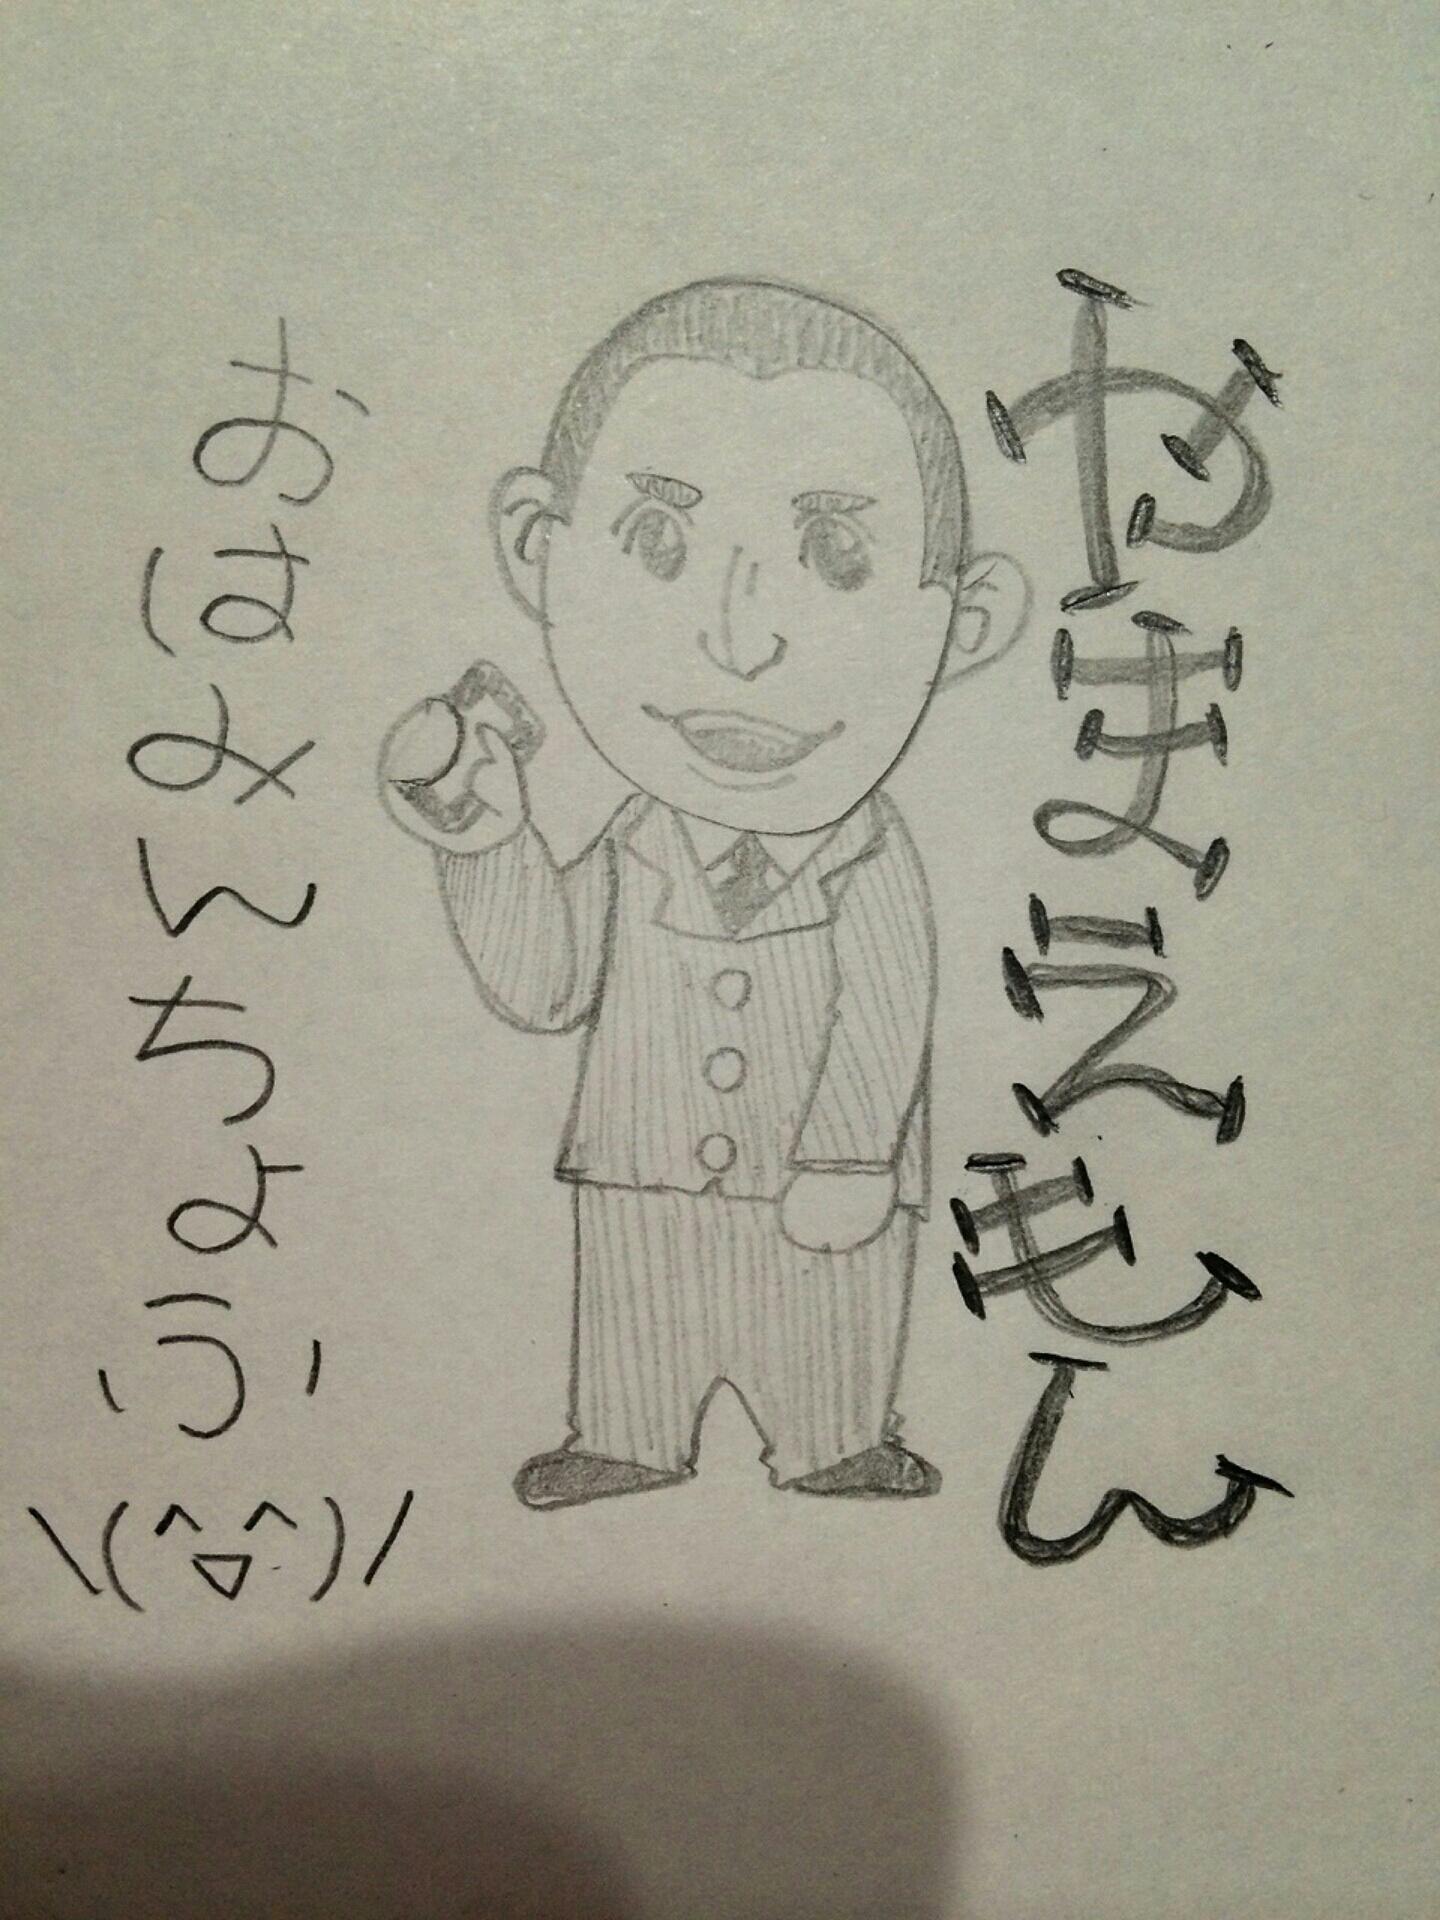 やまえもん
おはみんちょうい
\(^▽^)/